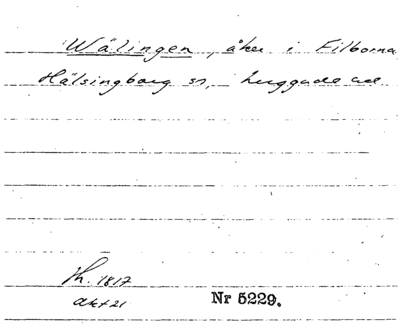 Wälingen, åker i Filborna
Hälsingborg sn, Luggude hd
Th. 1817
akt 21
Nr 5229.